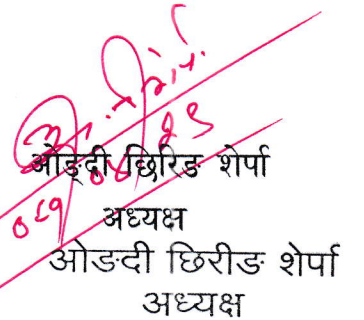 ओङ्दी छिरिङ शेर्पा
अध्यक्ष
ओङदी छिरीङ शेर्पा
अध्यक्ष